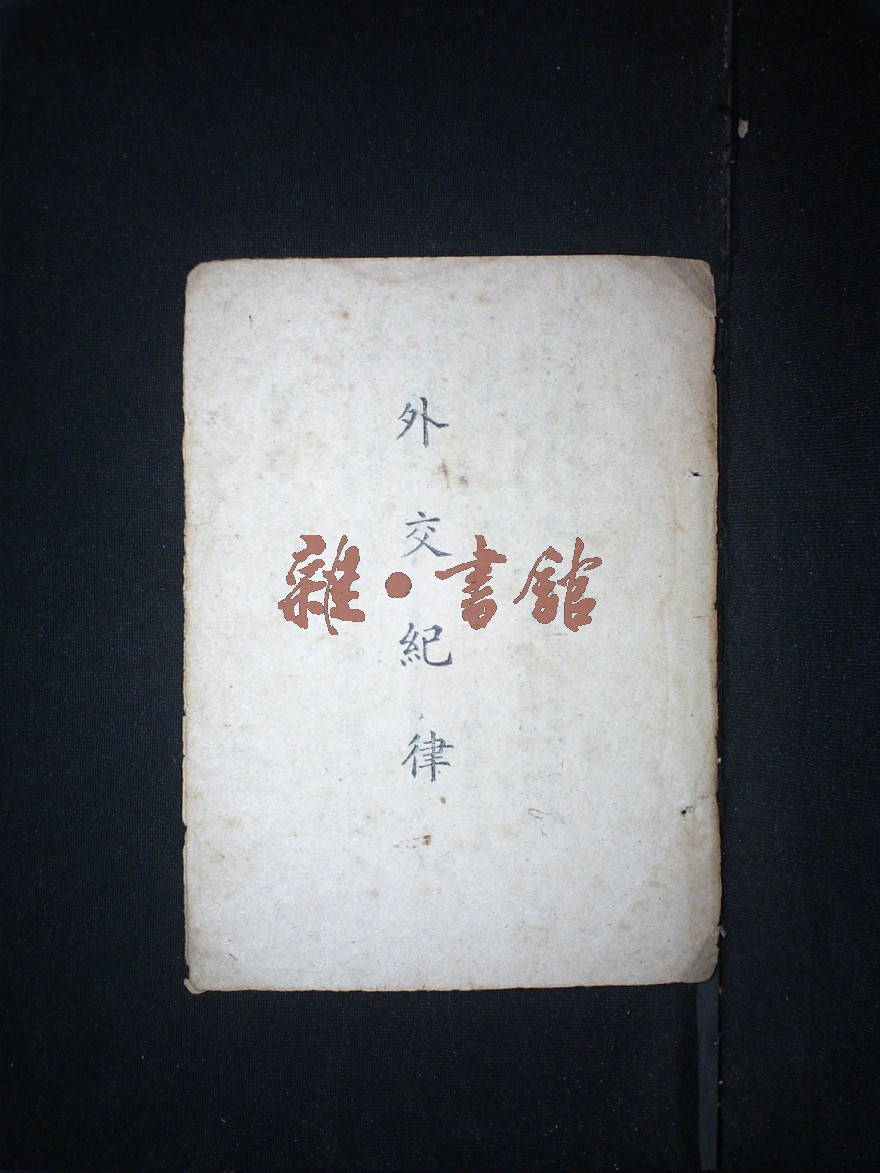 外交紀律
雜·書館